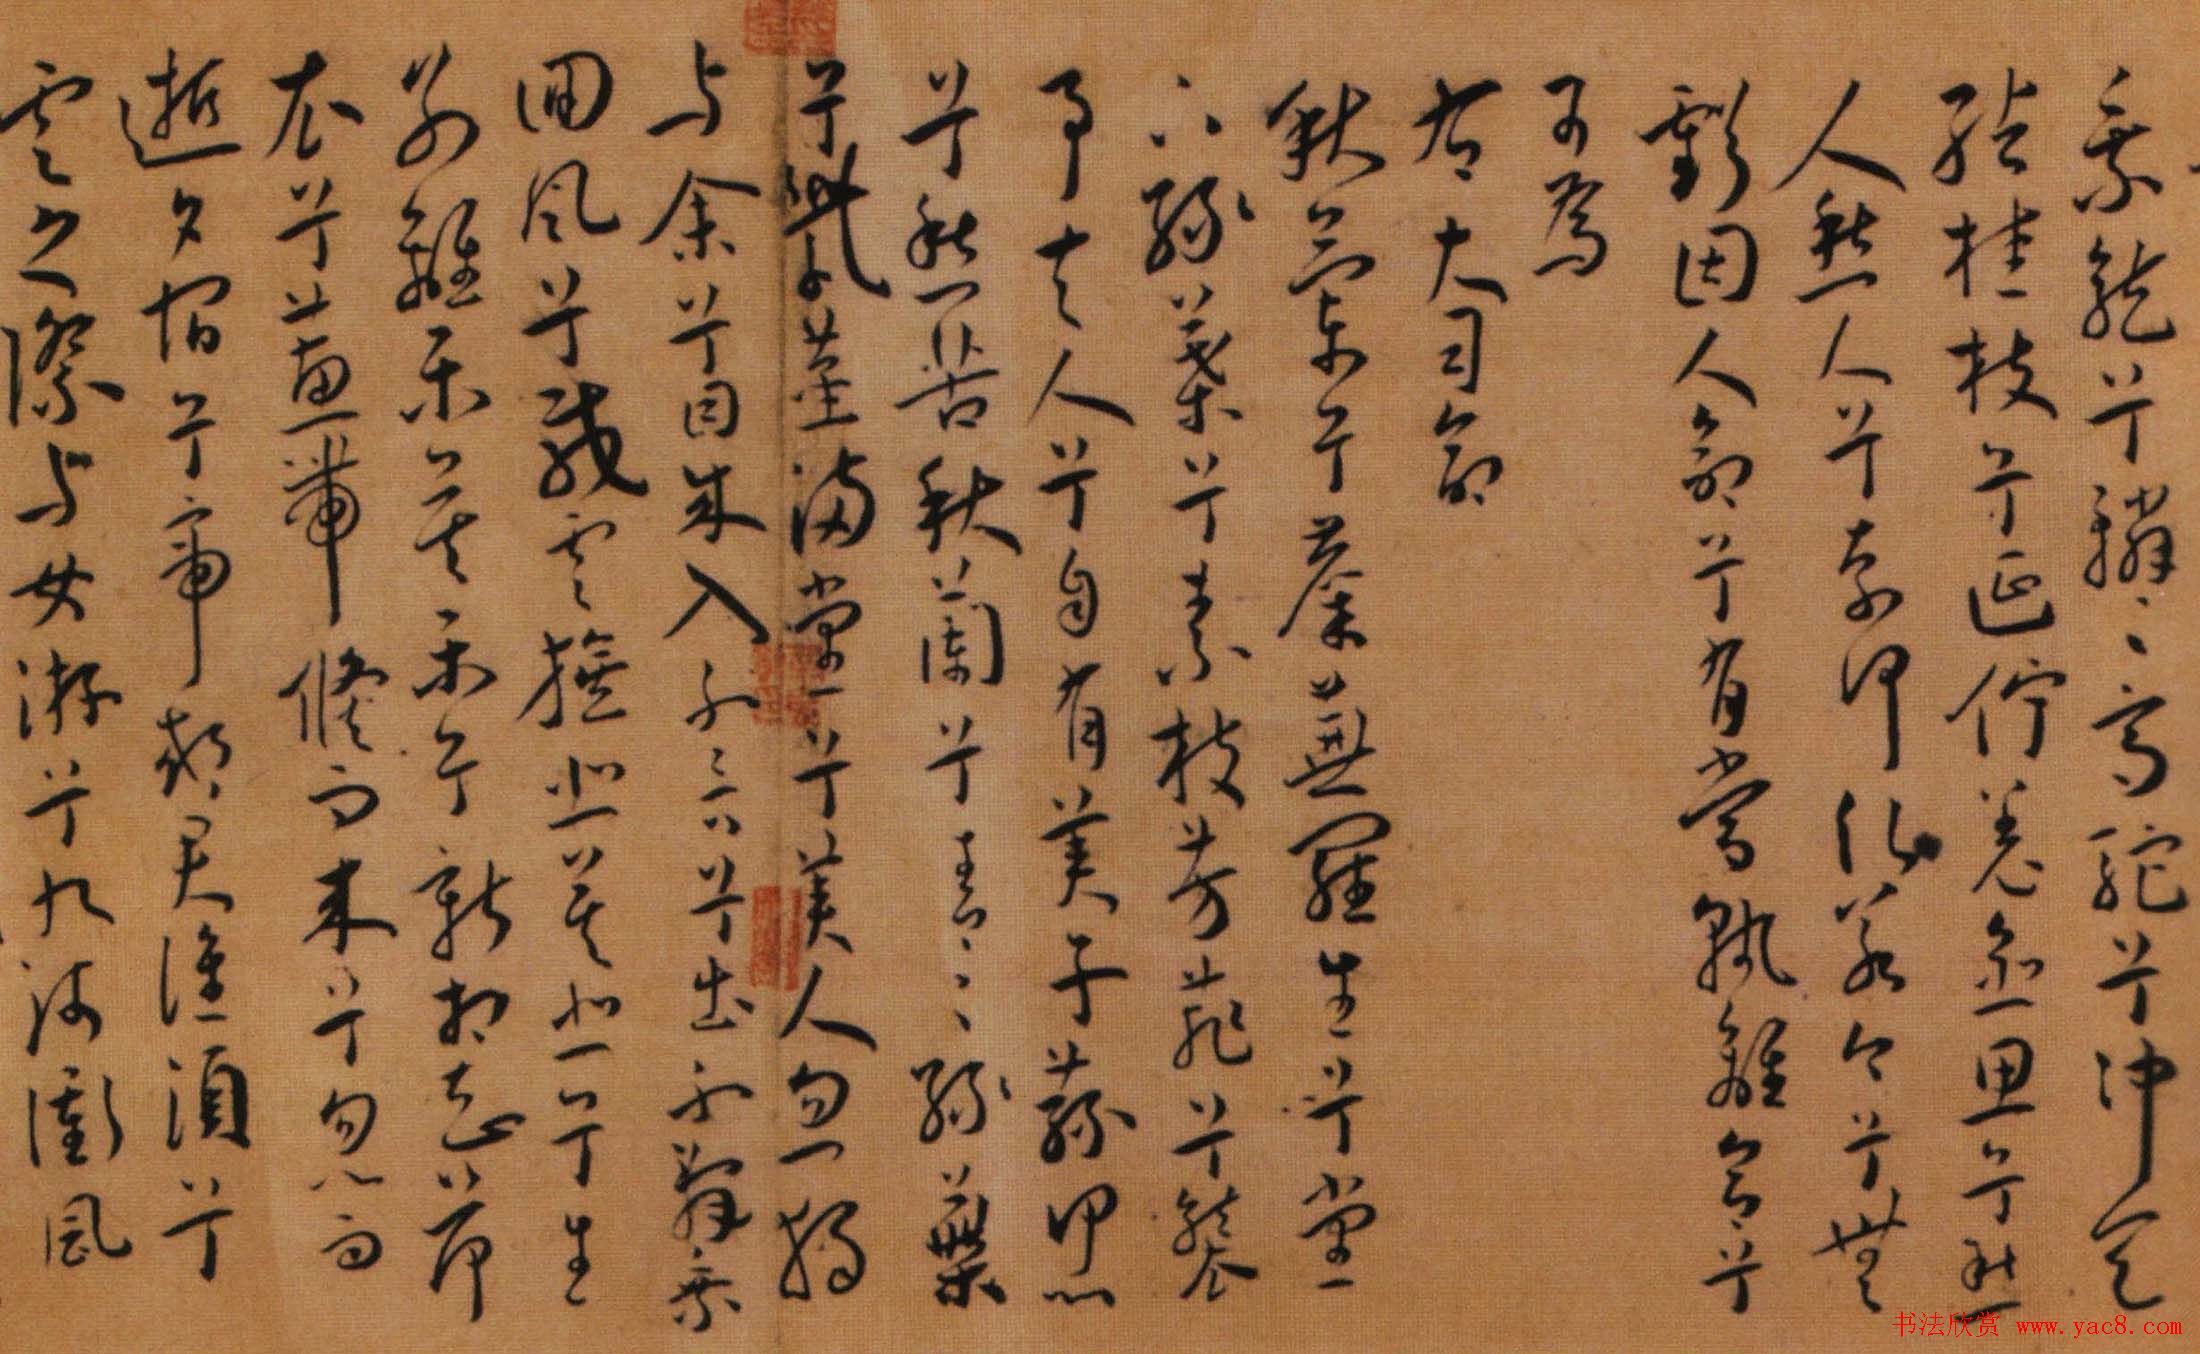 乘龍兮轔〻高駝兮沖天
結桂枝兮延佇羌愈思兮愁
人愁人兮奈何若今兮無
虧固人命兮有當孰離合兮
可為
右大司命
秋蘭兮蘼蕪羅生兮堂
下綠葉兮素枝芳菲兮襲
予夫人兮自有美子蓀何以
兮愁苦秋蘭兮青〻綠葉
兮紫莖滿堂兮美人忽獨
与余兮目成入不言兮出不辭乘
回風兮載雲旗悲莫悲兮生
別離樂莫樂兮新相知荷
衣兮蕙帶儵而來兮忽而
逝夕宿兮帝郊君誰須兮
雲之際与女游兮九河衝風
书法欣赏 www.yac8.com